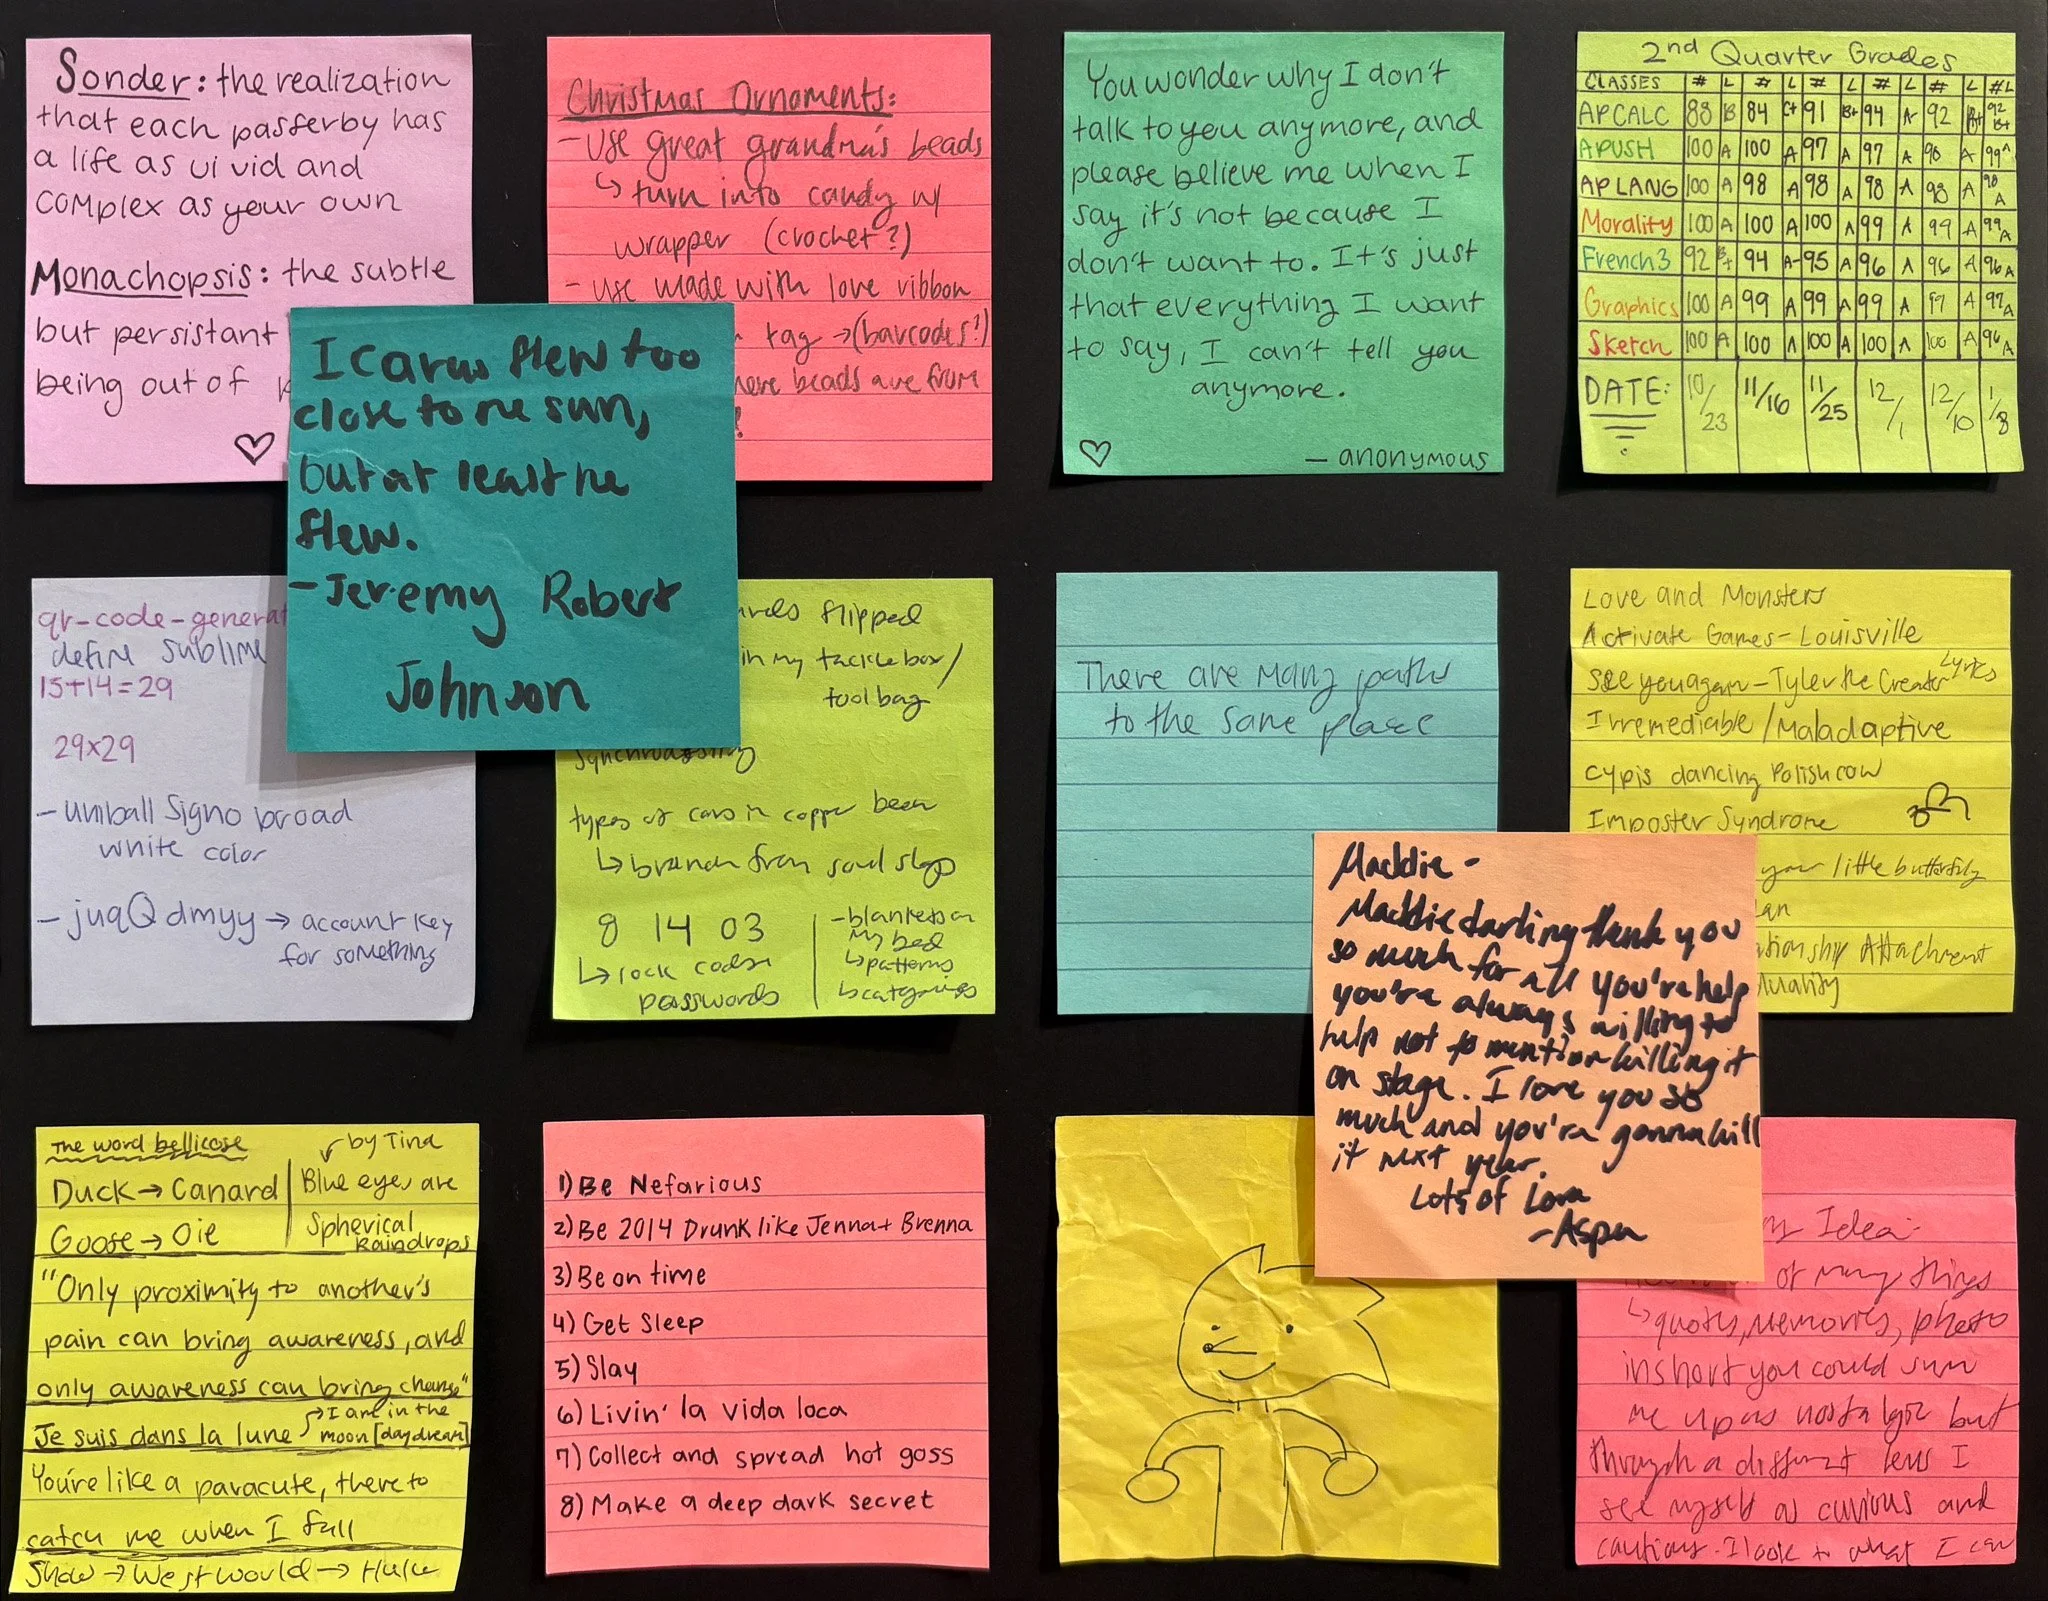 Sonder: the realization
that each passerby has
a life as vivid and
complex as your own
Monachopsis: the subtle
but persistant
being out of
Christmas Ornaments:
- use great grandma's beads
↳ turn into candy w/
wrapper (crochet?)
- use made with love ribbon
tag → (barcodes?)
beads are from
Icarus flew too
close to the sun,
but at least he
flew.
- Jeremy Robert
Johnson
You wonder why I don't
talk to you anymore, and
please believe me when I
say it's not because I
don't want to. It's just
that everything I want
to say, I can't tell you
anymore.
- anonymous
2nd Quarter Grades
CLASSES # L # L # L # L # L # L
AP CALC 88 B 84 C+ 91 B+ 94 A- 92 B+ 92 B+
APUSH 100 A 100 A 97 A 97 A 98 A 99 A
AP LANG 100 A 98 A 98 A 98 A 98 A 98 A
Morality 100 A 100 A 100 A 99 A 99 A 99 A
French 3 92 B+ 94 A- 95 A 96 A 96 A 96 A
Graphics 100 A 99 A 99 A 99 A 97 A 97 A
Sketch 100 A 100 A 100 A 100 A 100 A 96 A
DATE: 10/23 11/16 11/25 12/1 12/10 1/8
qr-code-generat
define sublime
15+14=29
29x29
- uniball Signo broad
white color
- juqQdmyy → account key
for something
flipped
in my tacklebox/
tool bag
types of cars in copper been
↳ branch from soul slop
8 14 03
↳ lock codes
passwords
- blankets on
my bed
↳ patterns
↳ categories
There are many paths
to the same place
Love and Monsters
Activate Games - Louisville
See you again - Tyler the Creator Lyrics
Irremediable / Maladaptive
cypis dancing Polish cow
Imposter Syndrome
your little butterfly
Attachment
Maddie -
Maddie darling thank you
so much for all you're help
you're always willing to
help not to mention killing it
on stage. I love you so
much and you're gonna kill
it next year.
Lots of Love
- Aspen
The word bellicose
Duck → Canard
Goose → Oie
by Tina
Blue eyes are
Spherical
Raindrops
"Only proximity to another's
pain can bring awareness, and
only awareness can bring change"
Je suis dans la lune → I am in the
moon [daydream]
You're like a paracute, there to
catch me when I fall
Show → Westworld → Hulu
1) Be Nefarious
2) Be 2014 Drunk like Jenna + Brenna
3) Be on time
4) Get Sleep
5) Slay
6) Livin' la vida loca
7) Collect and spread hot goss
8) Make a deep dark secret
Idea:
of many things
↳ quotes, memories, photo
in short you could sum
me up as nostalgic but
through a different lens I
see myself as curious and
cautious. I look to what I can